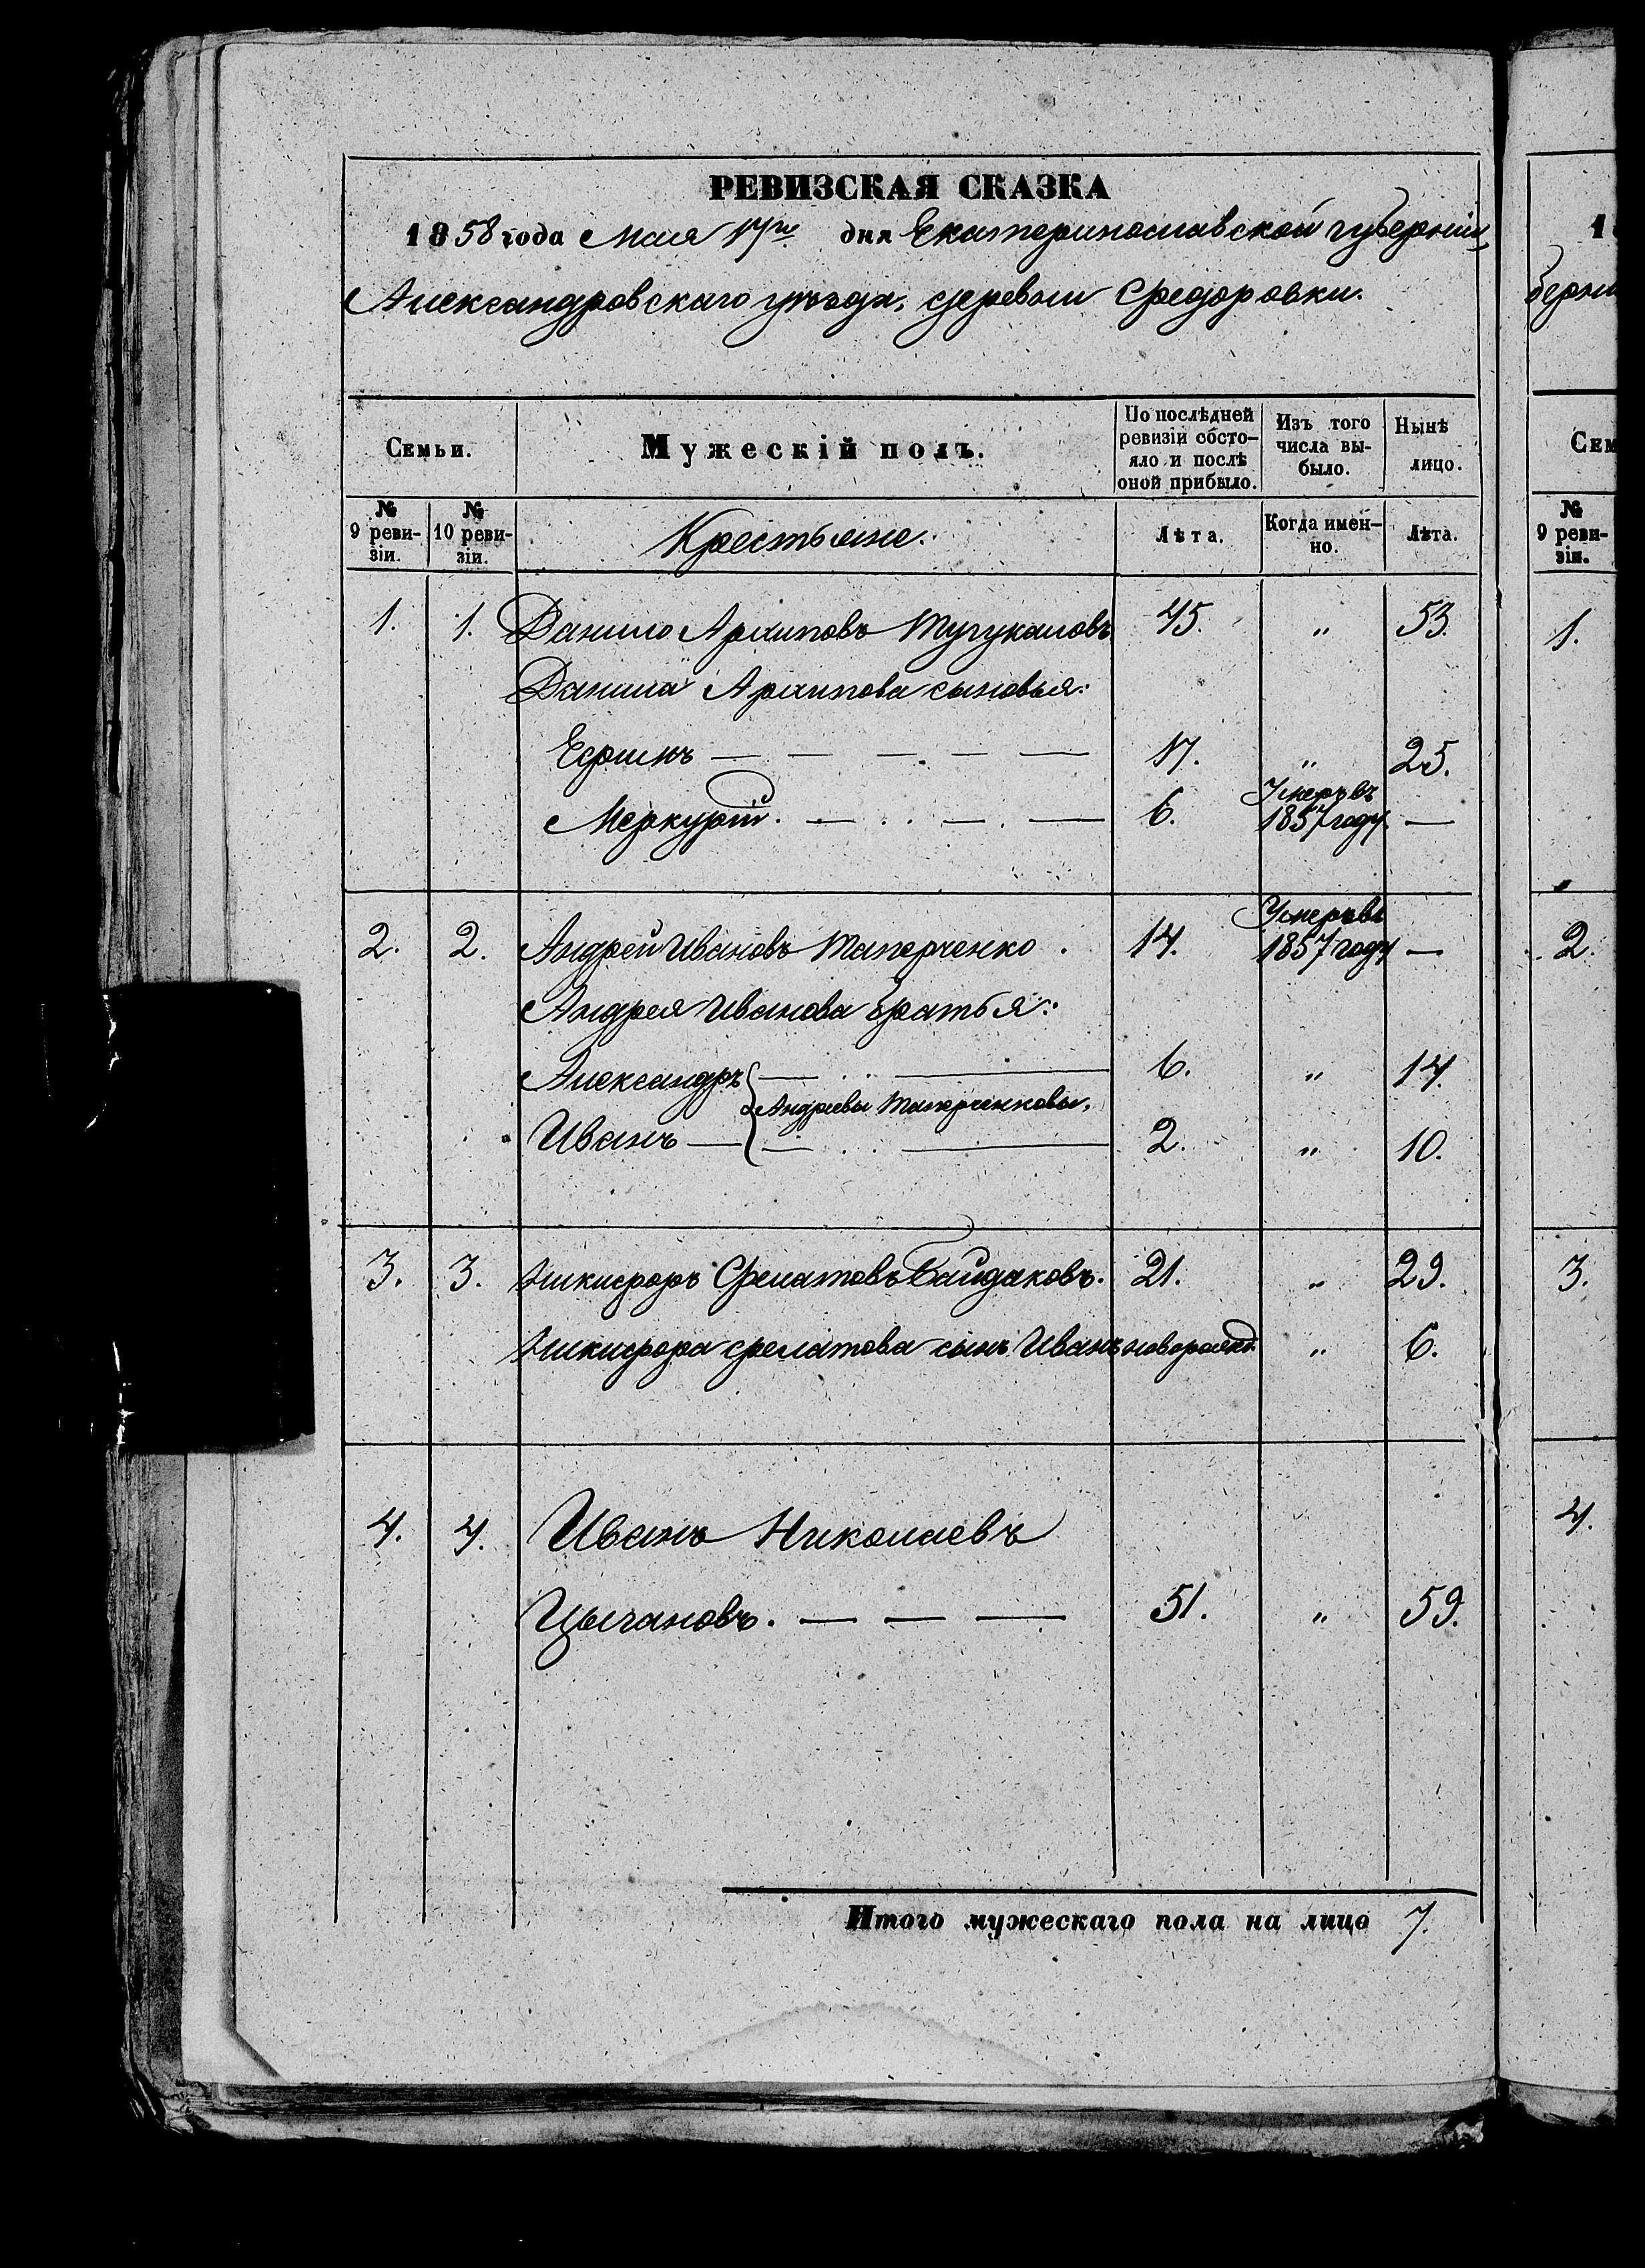 РЕВИЗСКАЯ СКАЗКА
1858 года Мая 17го дня Екатеринославской губерніи,
Александровскаго уѣзда, деревни Федоровки.
Семьи.
Мужескій полъ.
По послѣдней ревизіи состояло и послѣ оной прибыло.
Изъ того числа выбыло.
Нынѣ лицо.
№ 9 ревизіи.
№ 10 ревизіи.
Крестьяне.
Лѣта.
Когда именно.
Лѣта.
1. 1. Данило Архиповъ 45. " 53.
Данила Архипова сыновья:
Ефимъ — — — — — 17. " 25.
Меркурій. — . . — . — 6. Умеръ въ 1857 году —
2. 2. Андрей Ивановъ Таперченко . 14. Умеръ въ 1857 году —
Андрея Иванова братья:
Александръ 6. " 14.
Андреевы Таперченковы.
Иванъ — 2. " 10.
3. 3. Никифоръ Филатовъ Байдаковъ. 21. " 29.
Никифора Филатова сынъ Иванъ новорожд. " 6.
4. 4. Иванъ Николаевъ
Цыгановъ. — — — 51. " 59.
Итого мужескаго пола на лицо 7.
1
берні
Сем
№ 9 ревизіи.
1.
2.
3.
4.